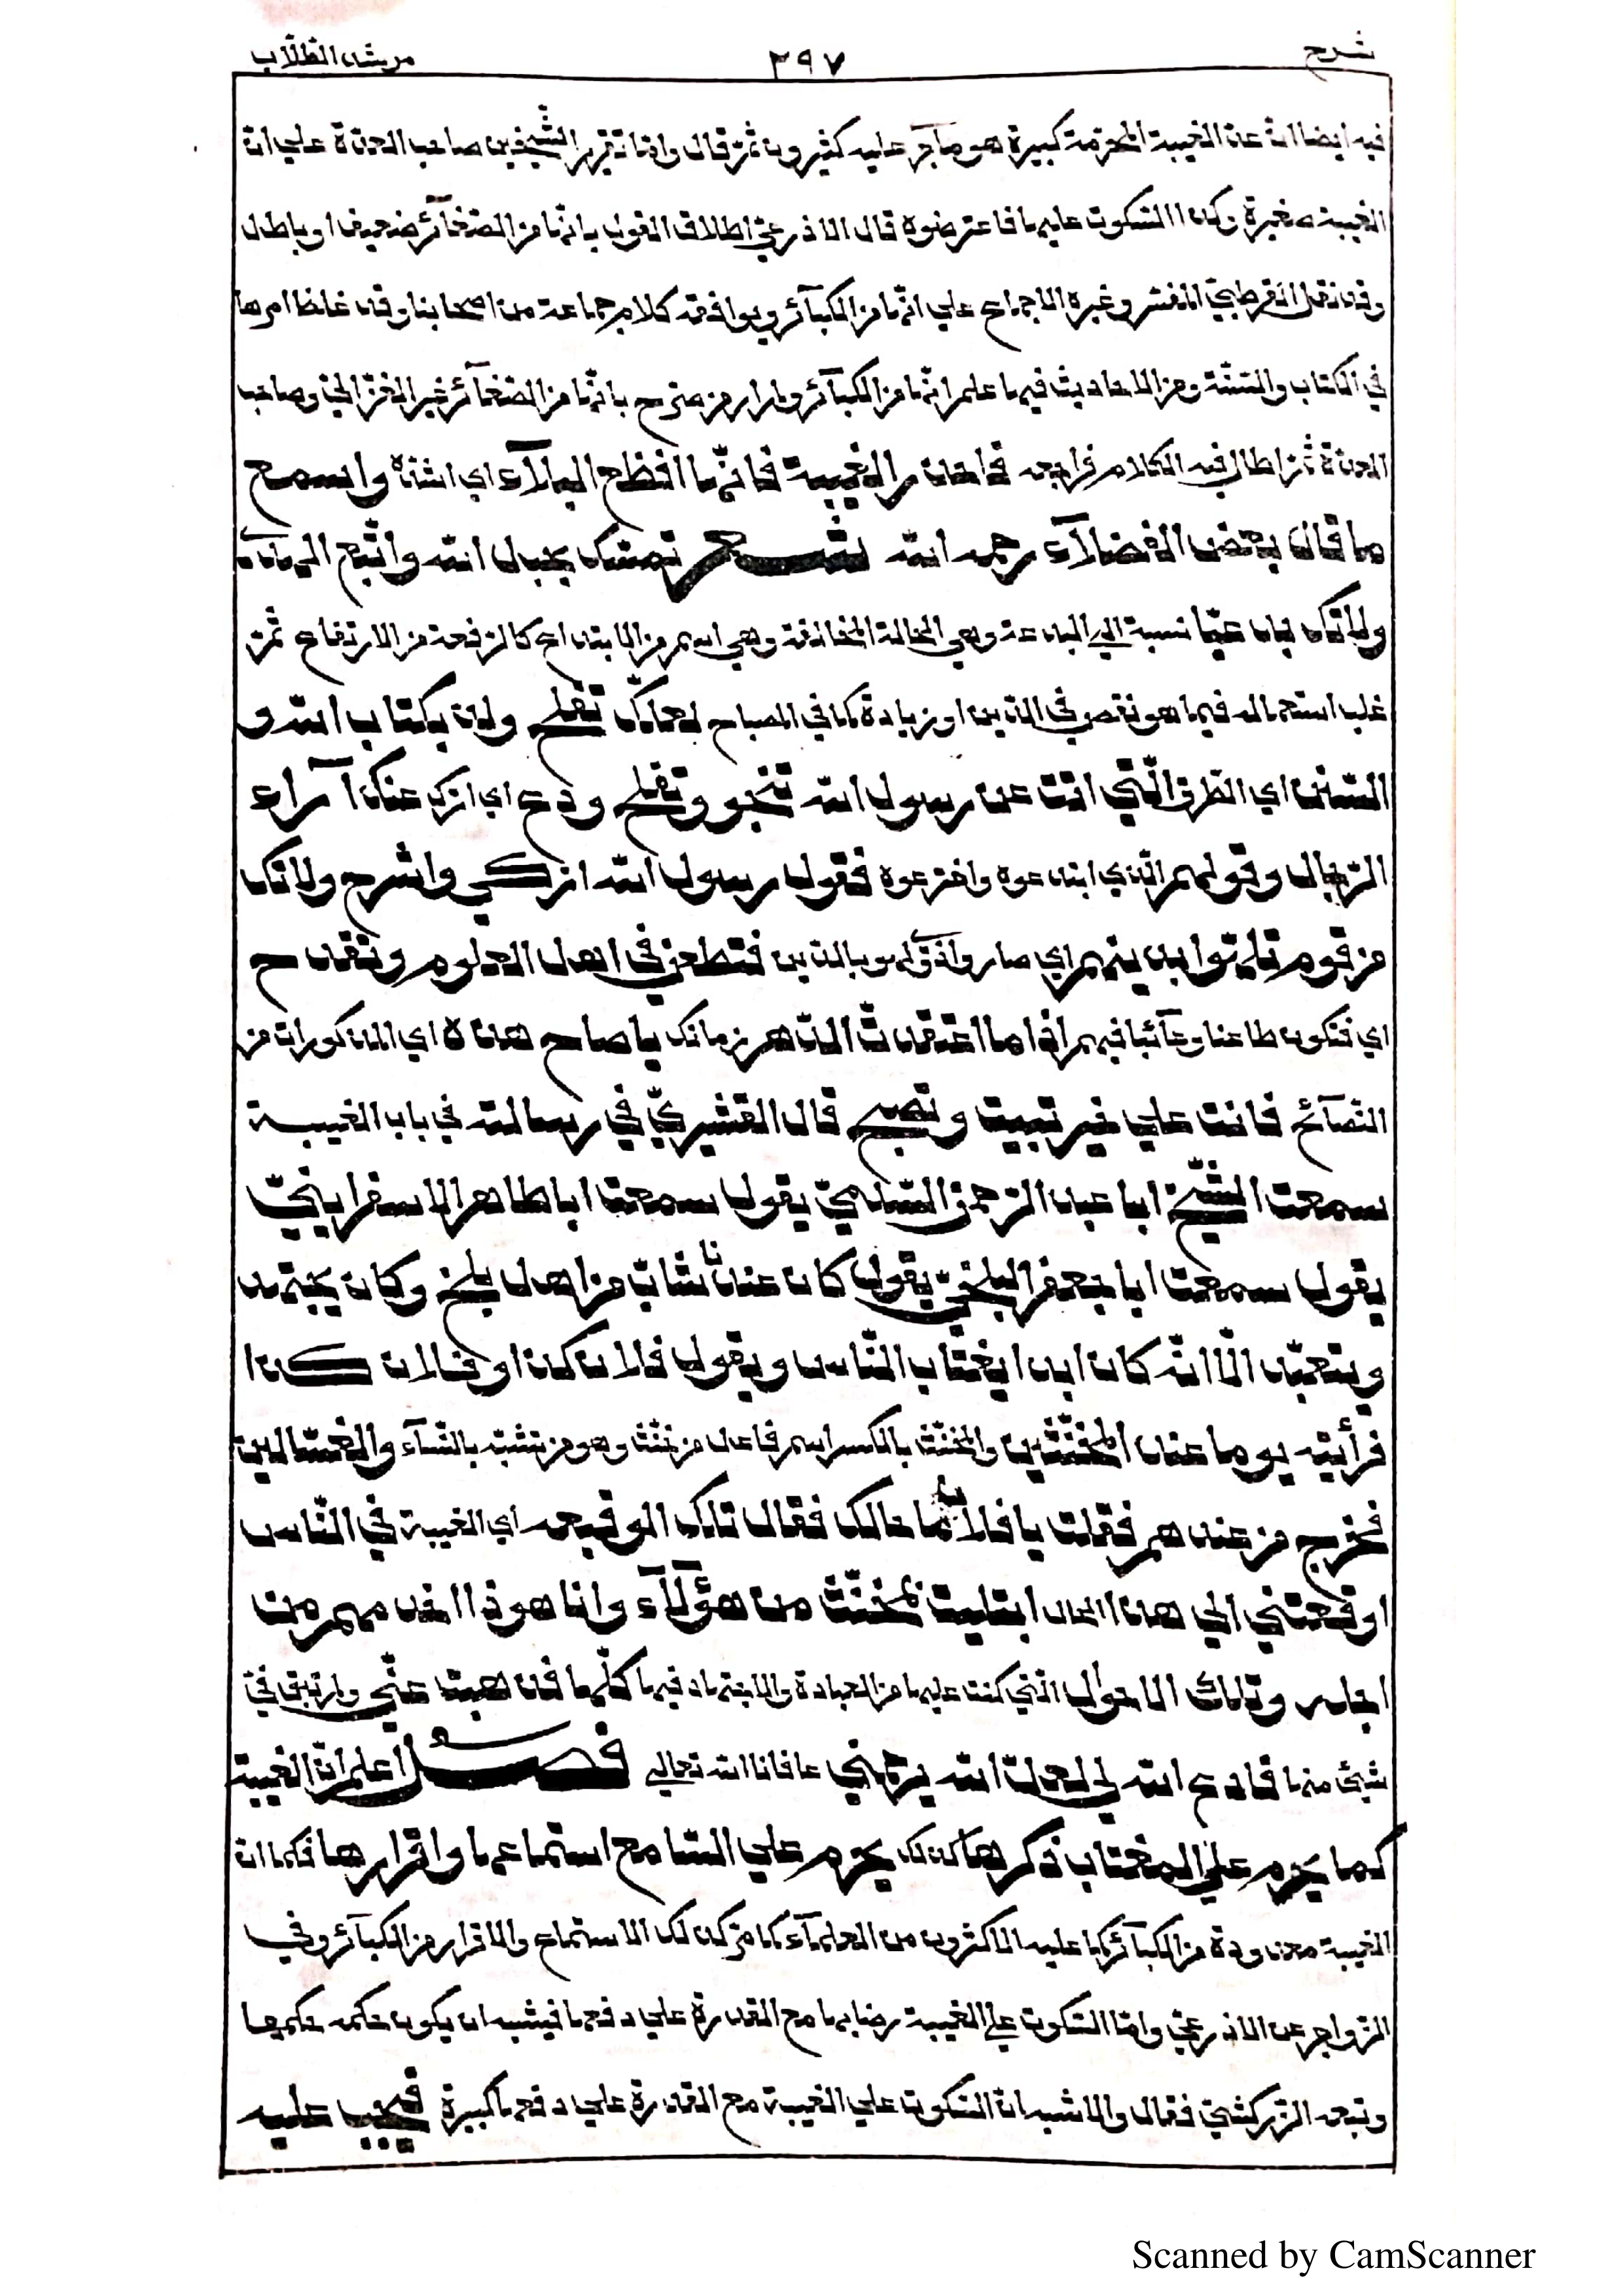 شرح ٢٩٧ مرشد الطلاب
فيه ايضا ان عد الغيبة المحرمة كبيرة هو ما جر عليه كثيرون ثمّ قال وامّا تقرير الشّيخين صاحب العدّة علي انّ
الغيبة صغيرة وكذا السّكوت عليها فاعترضوه قال الاذرعيّ اطلاق القول بانّها من الصّغآئر ضعيف او باطل
وقد نقل القرطبيّ المفسّر وغيره الاجماع علي انّها من الكبآئر ويوافقه كلام جماعة من اصحابنا وقد غلظ امرها
في الكتاب والسّنّة ومن الاحاديث فيها علم انّها من الكبآئر ولم ار من صرّح بانّها من الصّغآئر غير الغزّاليّ وصاحب
العدّة ثمّ اطال فيه الكلام فراجعه فاحذر الغيبة فانّها افظع البلآء اي اشدّه واسمع
ما قال بعض الفضلآء رحمه الله شعر تمسّك بحبل الله واتّبع الهدي
ولا تك بدعيّا نسبة الي البدعة وهي الحالة المخالفة وهي اسم من الابتداع كالرّفعة من الارتفاع ثمّ
غلب استعماله فيما هو نقص في الدّين او زيادة كما في المصباح لعلّك تفلح ولذ بكتاب الله و
السّنن اي الطّرق الّتي اتت عن رسول الله تنجو وتفلح ودع اي اترك عنك آرآء
الرّجال وقولهم الّذي ابتدعوه واخترعوه فقول رسول الله ازكي واشرح ولا تك
من قوم تلهّوا بدينهم اي صاروا ذوي لهو بالدّين فتطعن في اهل العلوم وتقدح
اي فتكون طاعنا وعآئبا فيهم اذا ما اعتقدت الدّهر زمانك يا صاح هذه اي المذكورات من
النّصآئح فانت علي خير تبيت وتصبح قال القشيريّ في رسالته في باب الغيبة
سمعت الشّيخ ابا عبد الرّحمن السّلميّ يقول سمعت ابا طاهر الاسفراينيّ
يقول سمعت ابا جعفر البلخيّ يقول كان عندنا شابّ من اهل بلخ وكان يجتهد
ويتعبّد الّا انّه كان ابدا يغتاب النّاس ويقول فلان كذا وفلان كذا
فرأيته يوما عند المخنّثين والمخنّث بالكسر اسم فاعل من خنّث وهو من تشبّه بالنّسآء والغسّالين
فخرج من عندهم فقلت يا فلان ما حالك فقال تلك الوقيعه اي الغيبة في النّاس
اوقعتني الي هذا الحال ابتليت بمخنّث من هؤلآء وانا هوذا اخدمهم من
اجله وتلك الاحوال الّتي كنت عليها من العبادة والاجتهاد فيها كلّها قد ذهبت عنّي ولم تبق فيّ
شيئ منها فادع الله لي لعلّ الله يرحمني عافانا الله تعالي فصل اعلم انّ الغيبة
كما يحرم علي المغتاب ذكرها كذلك يحرم علي السّامع استماعها واقرارها فكما انّ
الغيبة معدودة من الكبآئر كما عليه الاكثرون من العلمآء كما مرّ كذلك الاستماع والاقرار من الكبآئر وفي
الزّواجر عن الاذرعيّ وامّا السّكوت علي الغيبة رضا بها مع القدرة علي دفعها فيشبه ان يكون حكمه حكمها
وتبعه الزّركشيّ فقال والاشبه انّ السّكوت علي الغيبة مع القدرة علي دفعها كبيرة فيجب عليه
Scanned by CamScanner